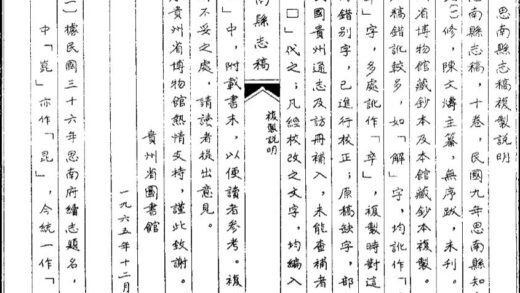 思南縣志稿複製說明
思南縣志稿，十卷，民國九年思南縣知
修，陳文燽主纂，無序跋，未刊。
省博物館藏鈔本及本館藏鈔本複製。
稿錯訛較多，如「解」字，均訛作「
」字，多處訛作「卒」，複製時對這
錯别字，已進行校正；原稿缺字，即
民國貴州通志及訪冊補入，未能查補者
□」代之；凡經校改之文字，均編入
南縣志稿
複製說明
」中，附載書末，以便讀者參考。複
不妥之處，請讀者提出意見。
貴州省博物館熱情支持，謹此致謝。
貴州省圖書館
一九六五年十二月
(一)據民國三十六年思南府續志題名，
中「崑」亦作「昆」，今統一作「